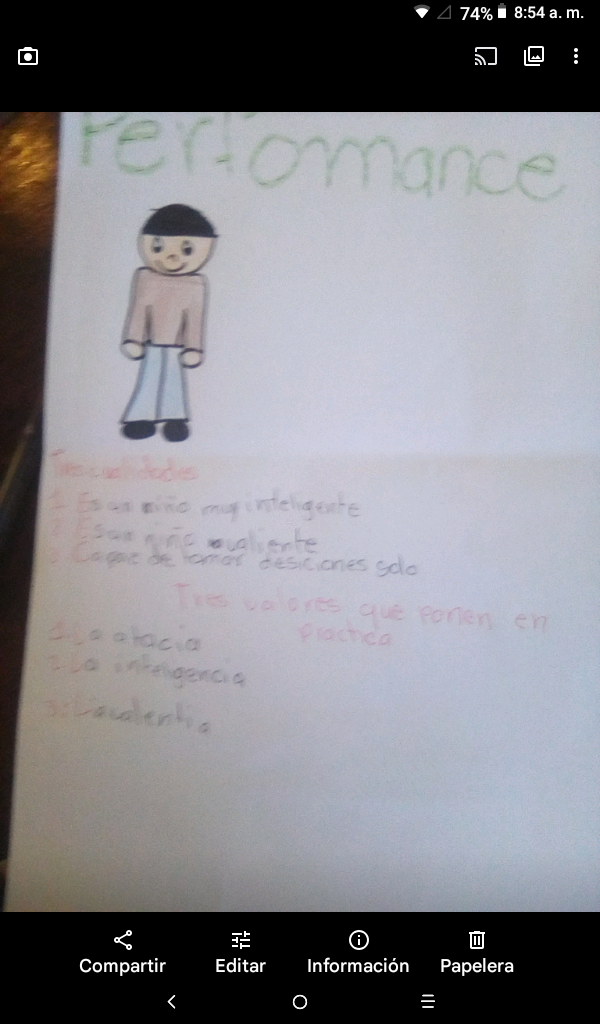 74% 8:54 a. m.
Performance
Tres cualidades
1 Es un niño muy inteligente
2 Es un niño valiente
3 Capaz de tomar desiciones solo
Tres valores que ponen en
Practica
1. La
2. La inteligencia
3.
Compartir Editar Información Papelera